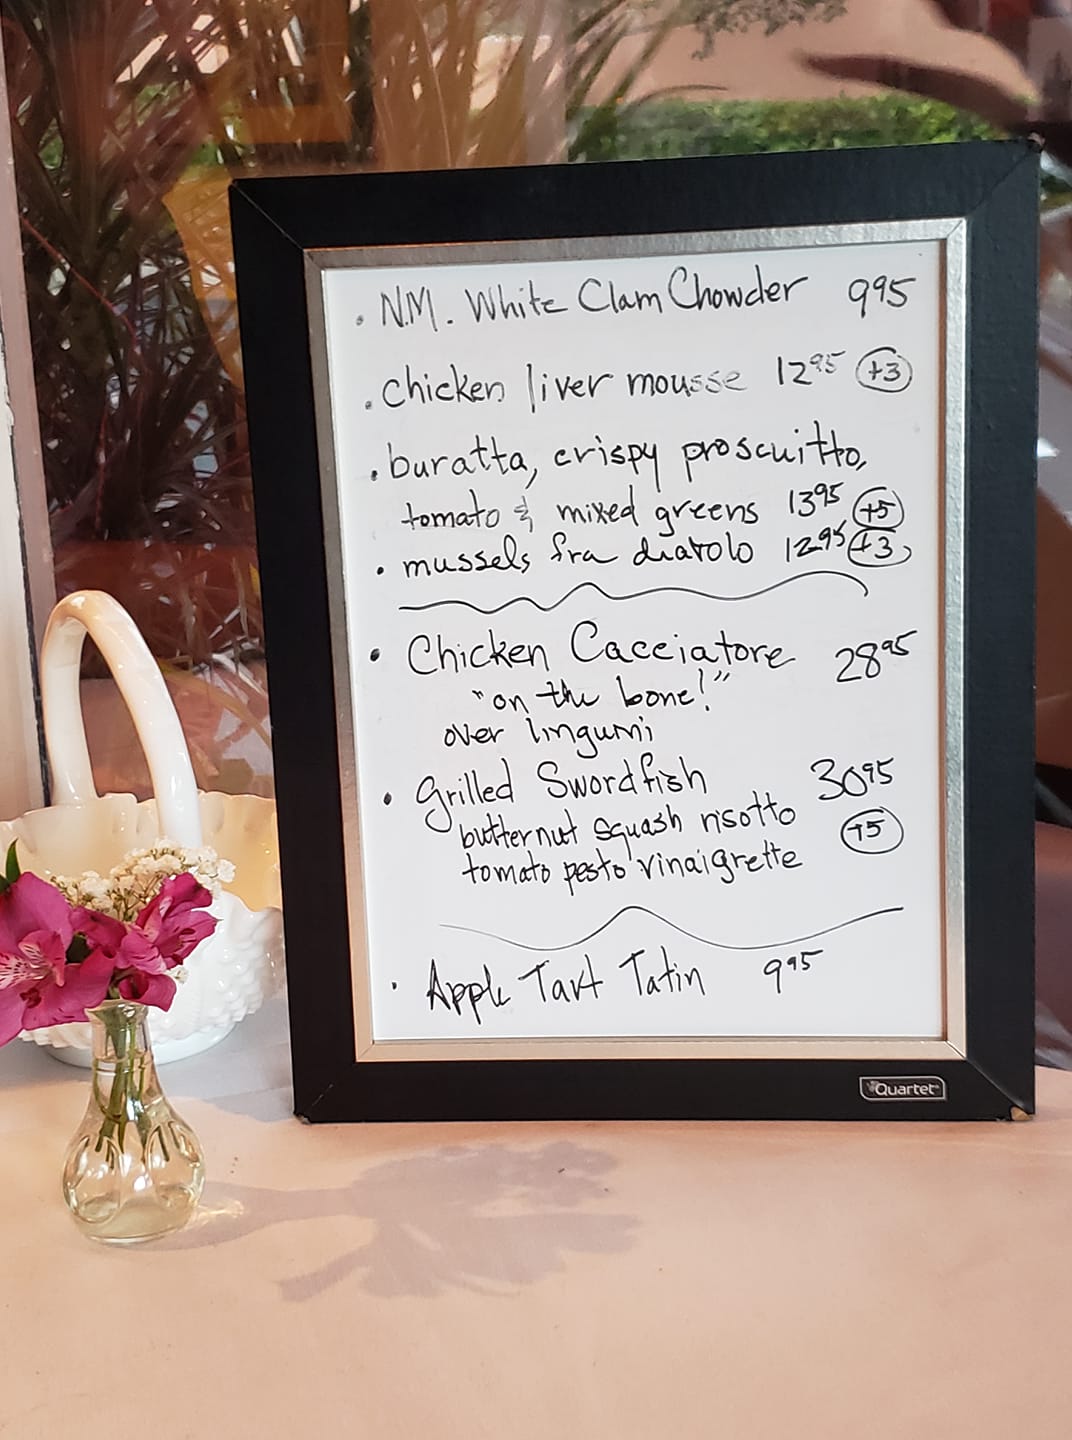 . N.M. White Clam Chowder 9 95
. chicken liver mousse 12 95 +3
. buratta, crispy proscuitto,
tomato & mixed greens 13 95 +5
• mussels fra diavolo 12.95 +3
• Chicken Cacciatore 28 95
"on the bone!"
over linguini
• Grilled Swordfish 30 95
butternut squash risotto +5
tomato pesto vinaigrette
. Apple Tart Tatin 9 95
Quartet